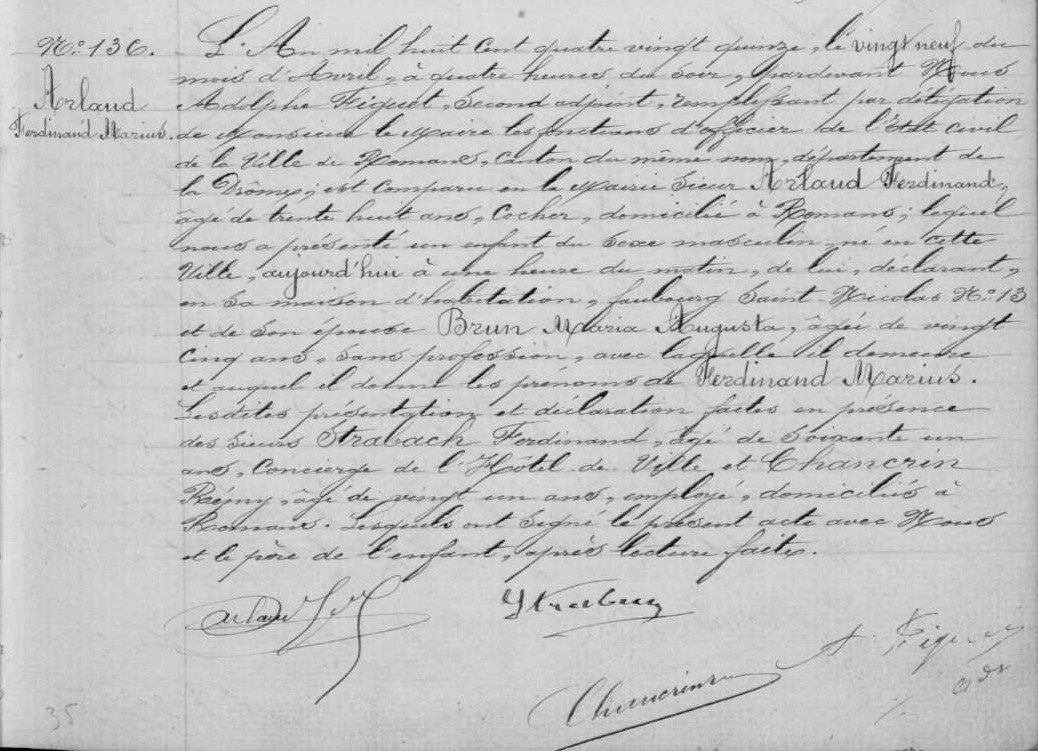 N° 136.
Arlaud
Ferdinand Marius.
L'An mil huit cent quatre vingt quinze, le vingt neuf du
mois d'Avril, à quatre heures du soir, pardevant Nous
Adolphe Fiquet, second adjoint, remplissant par délégation
de Monsieur le Maire les fonctions d'officier de l'Etat civil
de la Ville de Romans, canton du même nom, département de
la Drôme, est comparu en la Mairie sieur Arlaud Ferdinand,
âgé de trente huit ans, cocher, domicilié à Romans; lequel
nous a présenté un enfant du sexe masculin, né en cette
Ville, aujourd'hui à une heure du matin, de lui, déclarant,
en sa maison d'habitation, faubourg Saint-Nicolas N° 13
et de son épouse Brun Maria Augusta, âgée de vingt
cinq ans, sans profession, avec laquelle il demeure
et auquel il donne les prénoms de Ferdinand Marius.
Lesdites présentation et déclaration faites en présence
des sieurs Strabach Ferdinand, âgé de soixante un
ans, Concierge de l'Hôtel de Ville et Chancrin
Rémy, âgé de vingt un ans, employé, domiciliés à
Romans. Lesquels ont signé le présent acte avec Nous
et le père de l'enfant, après lecture faite.
Arlaud
A. Fiquet
adj
35